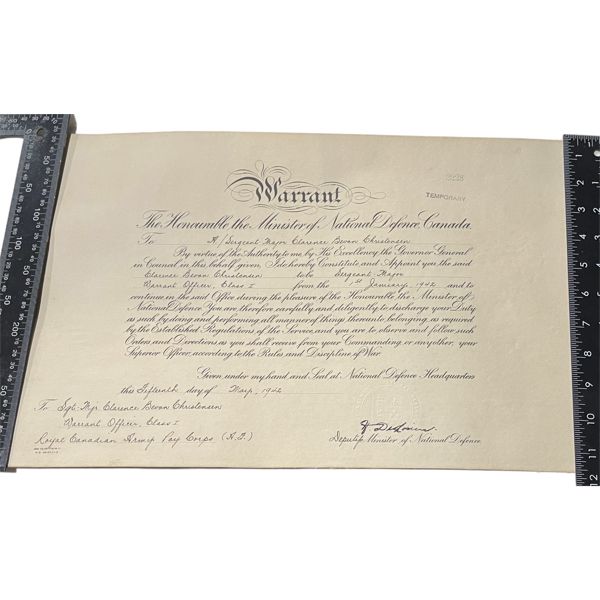 Warrant
TEMPORARY
The Honourable the Minister of National Defence, Canada.
To A/ Sergeant Major Clarence Bevan Christensen
By virtue of the Authority to me by His Excellency the Governor General
in Council in this behalf given, I do hereby Constitute and Appoint you the said
Clarence Bevan Christensen to be Sergeant Major
Warrant Officer, Class I from the 1st January, 1942 and to
continue in the said Office during the pleasure of the Honourable the Minister of
National Defence. You are therefore carefully and diligently to discharge your Duty
as such by doing and performing all manner of things thereunto belonging, as required
by the Established Regulations of the Service, and you are to observe and follow such
Orders and Directions as you shall receive from your Commanding, or any other, your
Superior Officer, according to the Rules and Discipline of War.
Given under my hand and Seal at National Defence Headquarters
this Fifteenth day of May, 1942
To Sgt. Mjr. Clarence Bevan Christensen
Warrant Officer, Class I
Royal Canadian Army Pay Corps (A.F.)
Deputy Minister of National Defence